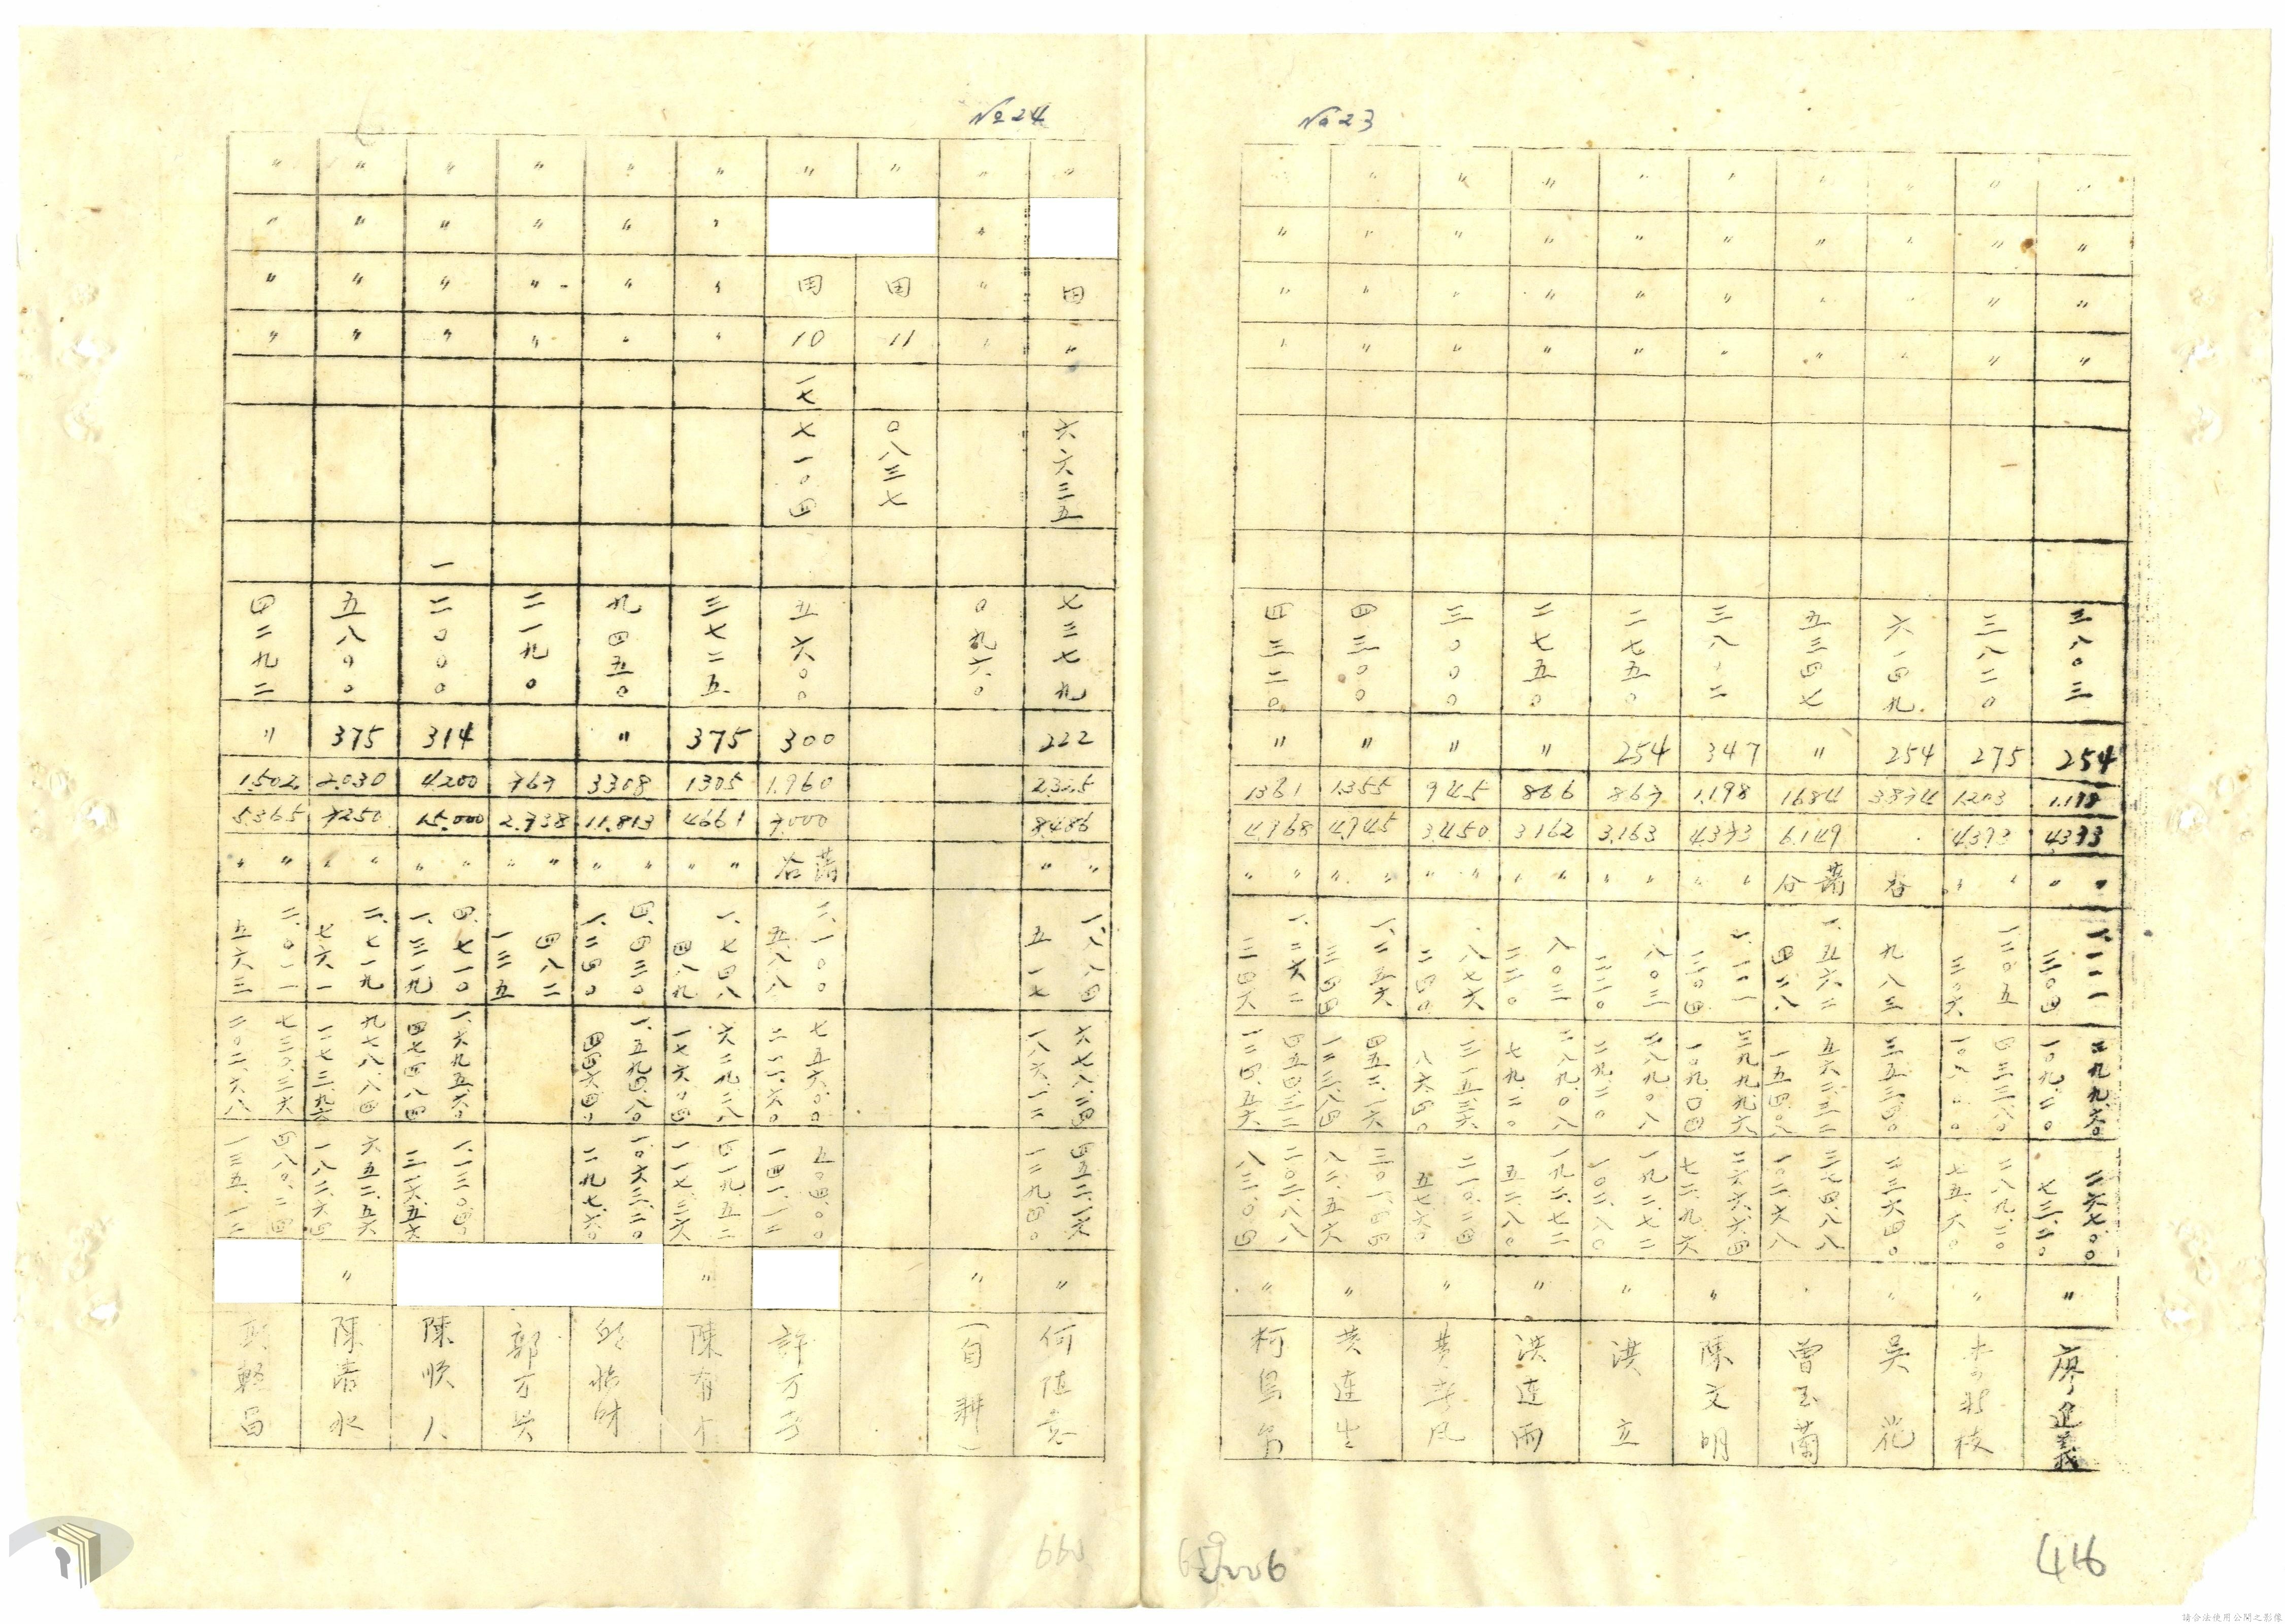 № 23
〃 〃 〃 〃 三八〇三 254 1.198 4373 〃 〃 一.一一一 三〇四 三九九.六〇 一〇九.二〇 二六七.〇〇 七三.二〇 〃 廖進義
〃 〃 〃 〃 三八二〇 275 1.203 4393 二八九.二〇 七五.六〇 〃 枝
〃 〃 〃 〃 六一四九 254 谷 九八三 三五三.四〇 〃 吳 花
〃 〃 〃 〃 五三四七 〃 1684 6.149 谷 藷 一.五六二 四二八 五六二.三二 一五四.〇八 三七四.八八 一〇二.六八 曾玉蘭
〃 〃 〃 〃 347 1.198 4373 〃 〃 三九九.九六 一〇九.四四 二六六.六四 七二.九六 〃 陳文明
〃 〃 〃 〃 二七五〇 254 867 3.163 〃 〃 八〇三 二二〇 二八九.〇八 一九二.七二 〃 洪 立
〃 〃 〃 〃 二七五〇 〃 866 3162 〃 〃 八〇三 二二〇 二八九.〇八 七九.二〇 一九二.七二 五二.八〇 〃 洪連雨
〃 〃 〃 〃 三〇〇〇 〃 945 3.450 〃 〃 八七六 二四〇 三一五.三六 八六.四〇 二一〇.二四 五七.六〇 〃 黃
〃 〃 〃 〃 四三〇〇 〃 1.355 4.945 〃 〃 一.二五六 三四四 四五二.一六 一二三.八四 三〇一.四四 八二.五六 〃 黃連生
〃 〃 〃 〃 四三二〇 〃 1361 4.968 〃 〃 一.二六二 三四六 四五四.三二 一二四.五六 三〇二.八八 八三.〇四 〃 柯
№ 24
〃 田 〃 六六三五 七三七九 222 8.486 〃 〃 一.八八四 五一七 六七八.二四 一八六.一二 四五二.一六 一二九.四〇 〃 何
〃 〃 〃 〃 〇九六〇 〃 (自耕)
〃 田 11 〇八三七
〃 田 10 一七 七一〇四 五六〇〇 300 1.960 7.000 谷 藷 二.一〇〇 五八八 七五六.〇〇 二一一.六〇 五〇四.〇〇 一四一.一二 許万
〃 〃 〃 〃 三七二五 375 1305 4661 〃 〃 一.七四八 四八九 六二九.二八 一七六.〇四 四一九.五二 一一七.三六 〃 陳有才
〃 〃 〃 〃 九四五〇 〃 3308 11.813 〃 〃 四.四三〇 一.二四〇 一.五九四.八〇 四四六.四〇 一.〇六三.二〇 二九七.六〇 邱
〃 〃 〃 〃 二一九〇 767 2.738 〃 〃 四八二 一三五 郭
〃 〃 〃 〃 一 二〇〇〇 314 4200 15.000 〃 〃 四.七一〇 一.三一九 一.六九五.六〇 四七四.八四 一.一三〇.四〇 三一六.五六 陳順人
〃 〃 〃 〃 五八〇〇 375 2.030 7250 〃 〃 二.七一九 七六一 九七八.八四 二七三.九六 六五二.五六 一八二.六四 〃 陳清水
〃 〃 〃 〃 四二九二 〃 1.502 5.365 〃 〃 二.〇一一 五六三 七三〇.三六 二〇二.六八 四八〇.二四 一三五.一二
660
416
請合法使用公開之影像